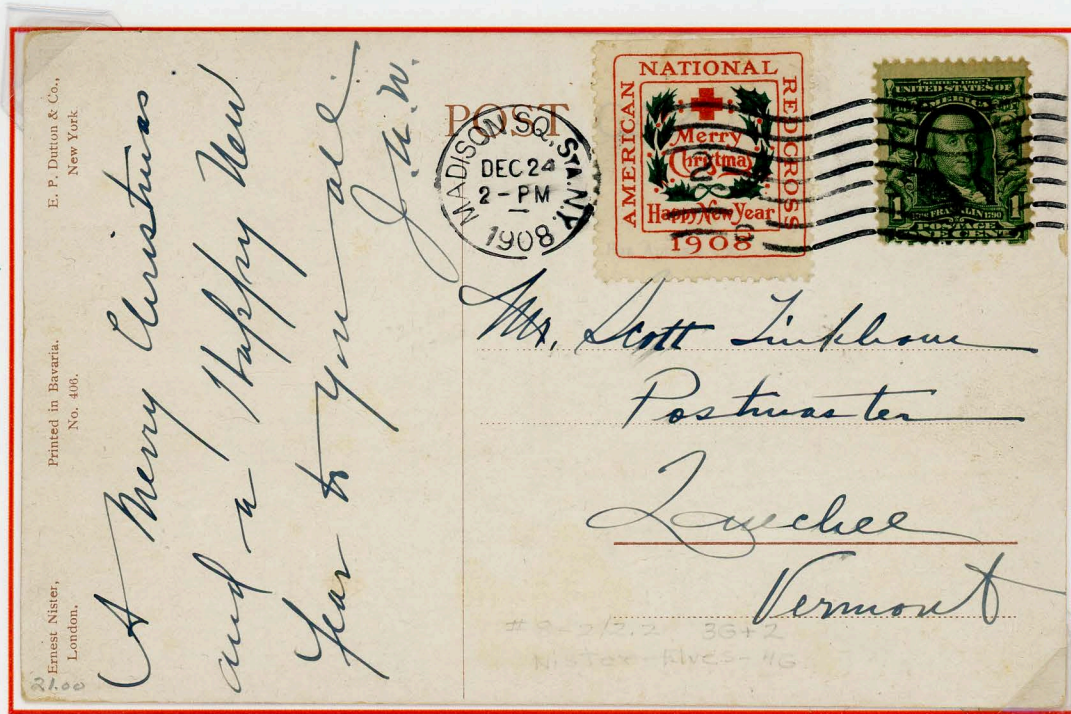 E. P. Dutton & Co.,
New York
Printed in Bavaria.
No. 406.
Ernest Nister,
London.
A Merry Christmas
and a Happy New
Year to you all.
J.A.W.
POST
MADISON SQ. STA. N.Y.
DEC 24
2 - PM
1908
AMERICAN NATIONAL RED CROSS
Merry
Christmas
Happy New Year
1908
SERIES 1902
UNITED STATES OF
AMERICA
1790 FRANKLIN 1790
1 POSTAGE 1
ONE CENT
Mr. Scott Tinkham
Postmaster
Quechee
Vermont
36+2
21.00